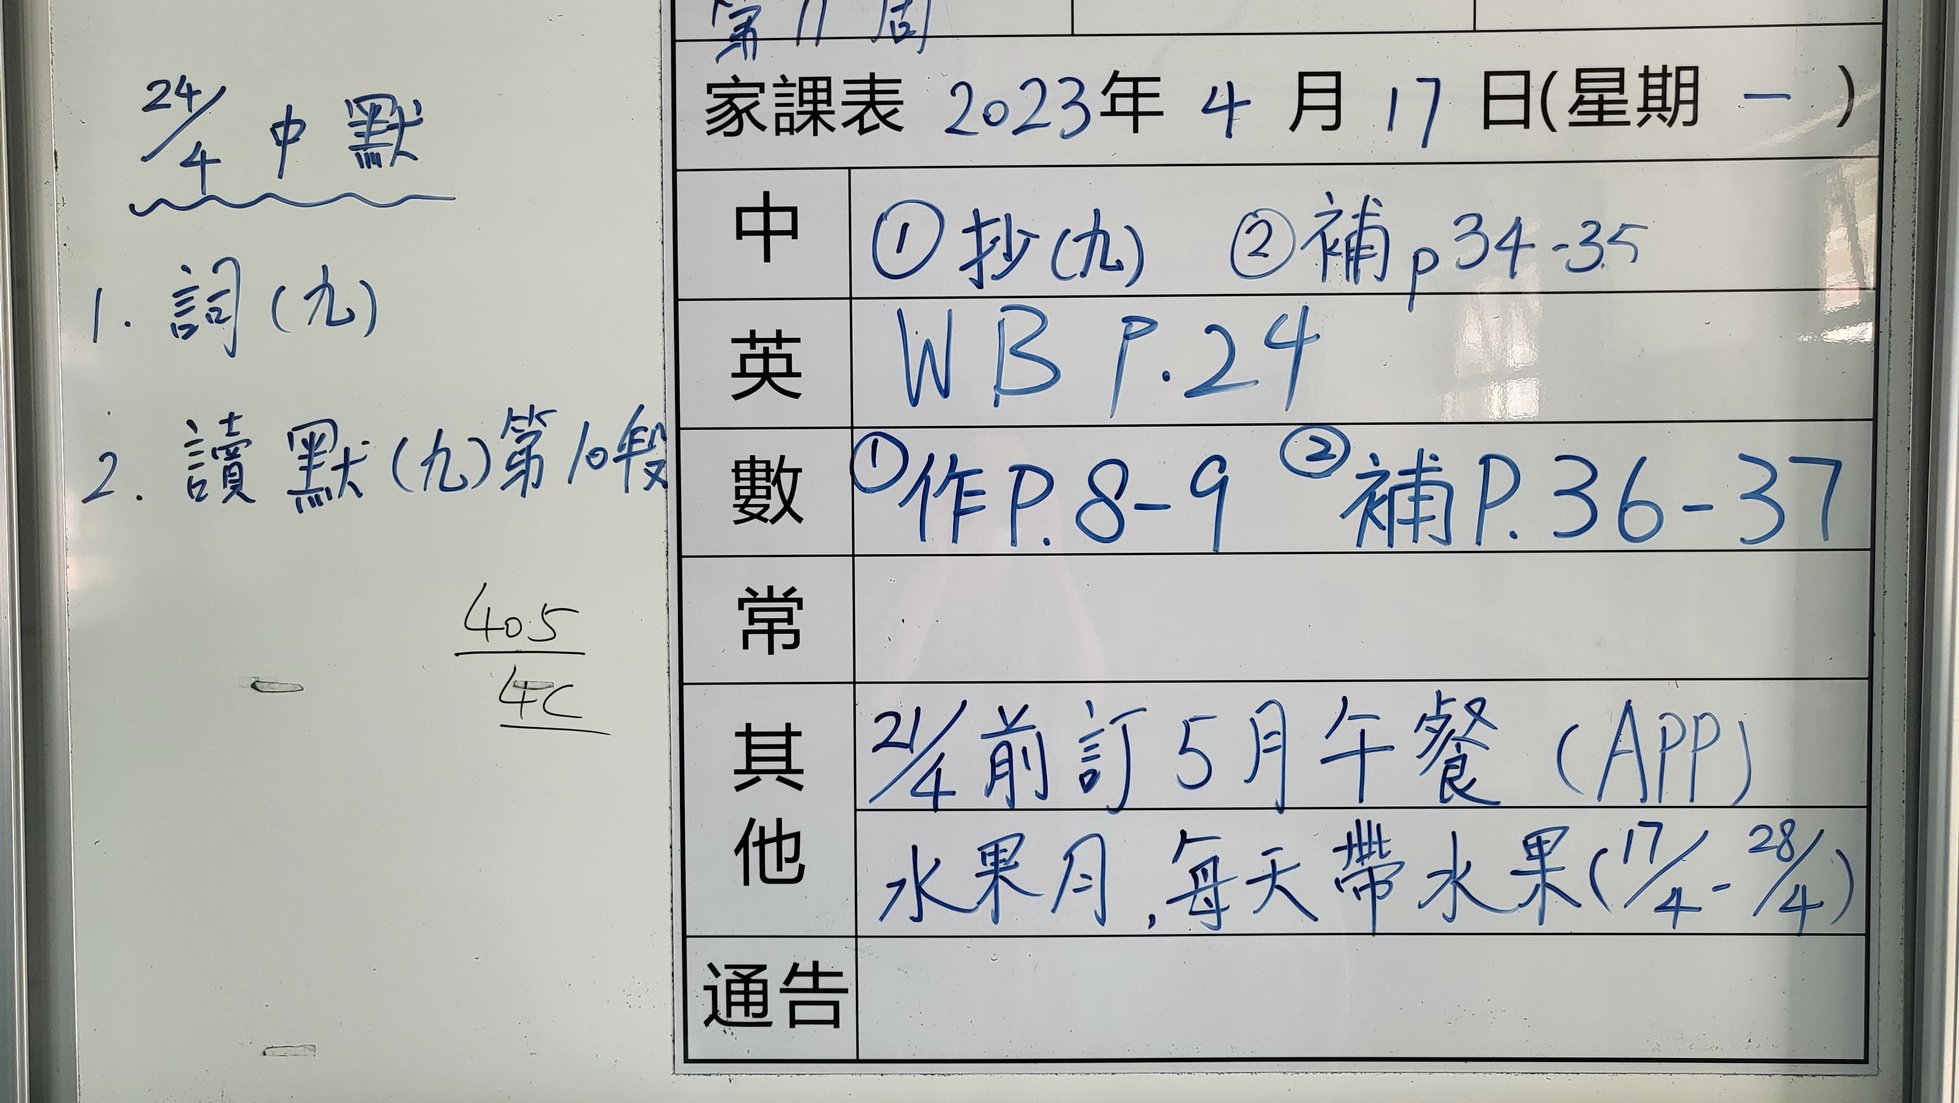 第11周
家課表 2023年 4 月 17 日(星期 一 )
中 ①抄(九) ②補p34-35
英 WB P.24
數 ①作P.8-9 ②補P.36-37
常
其他 21/4前訂5月午餐(APP)
水果月,每天帶水果(17/4-28/4)
通告
24/4中默
1. 詞(九)
2. 讀默(九)第10段
405
4C